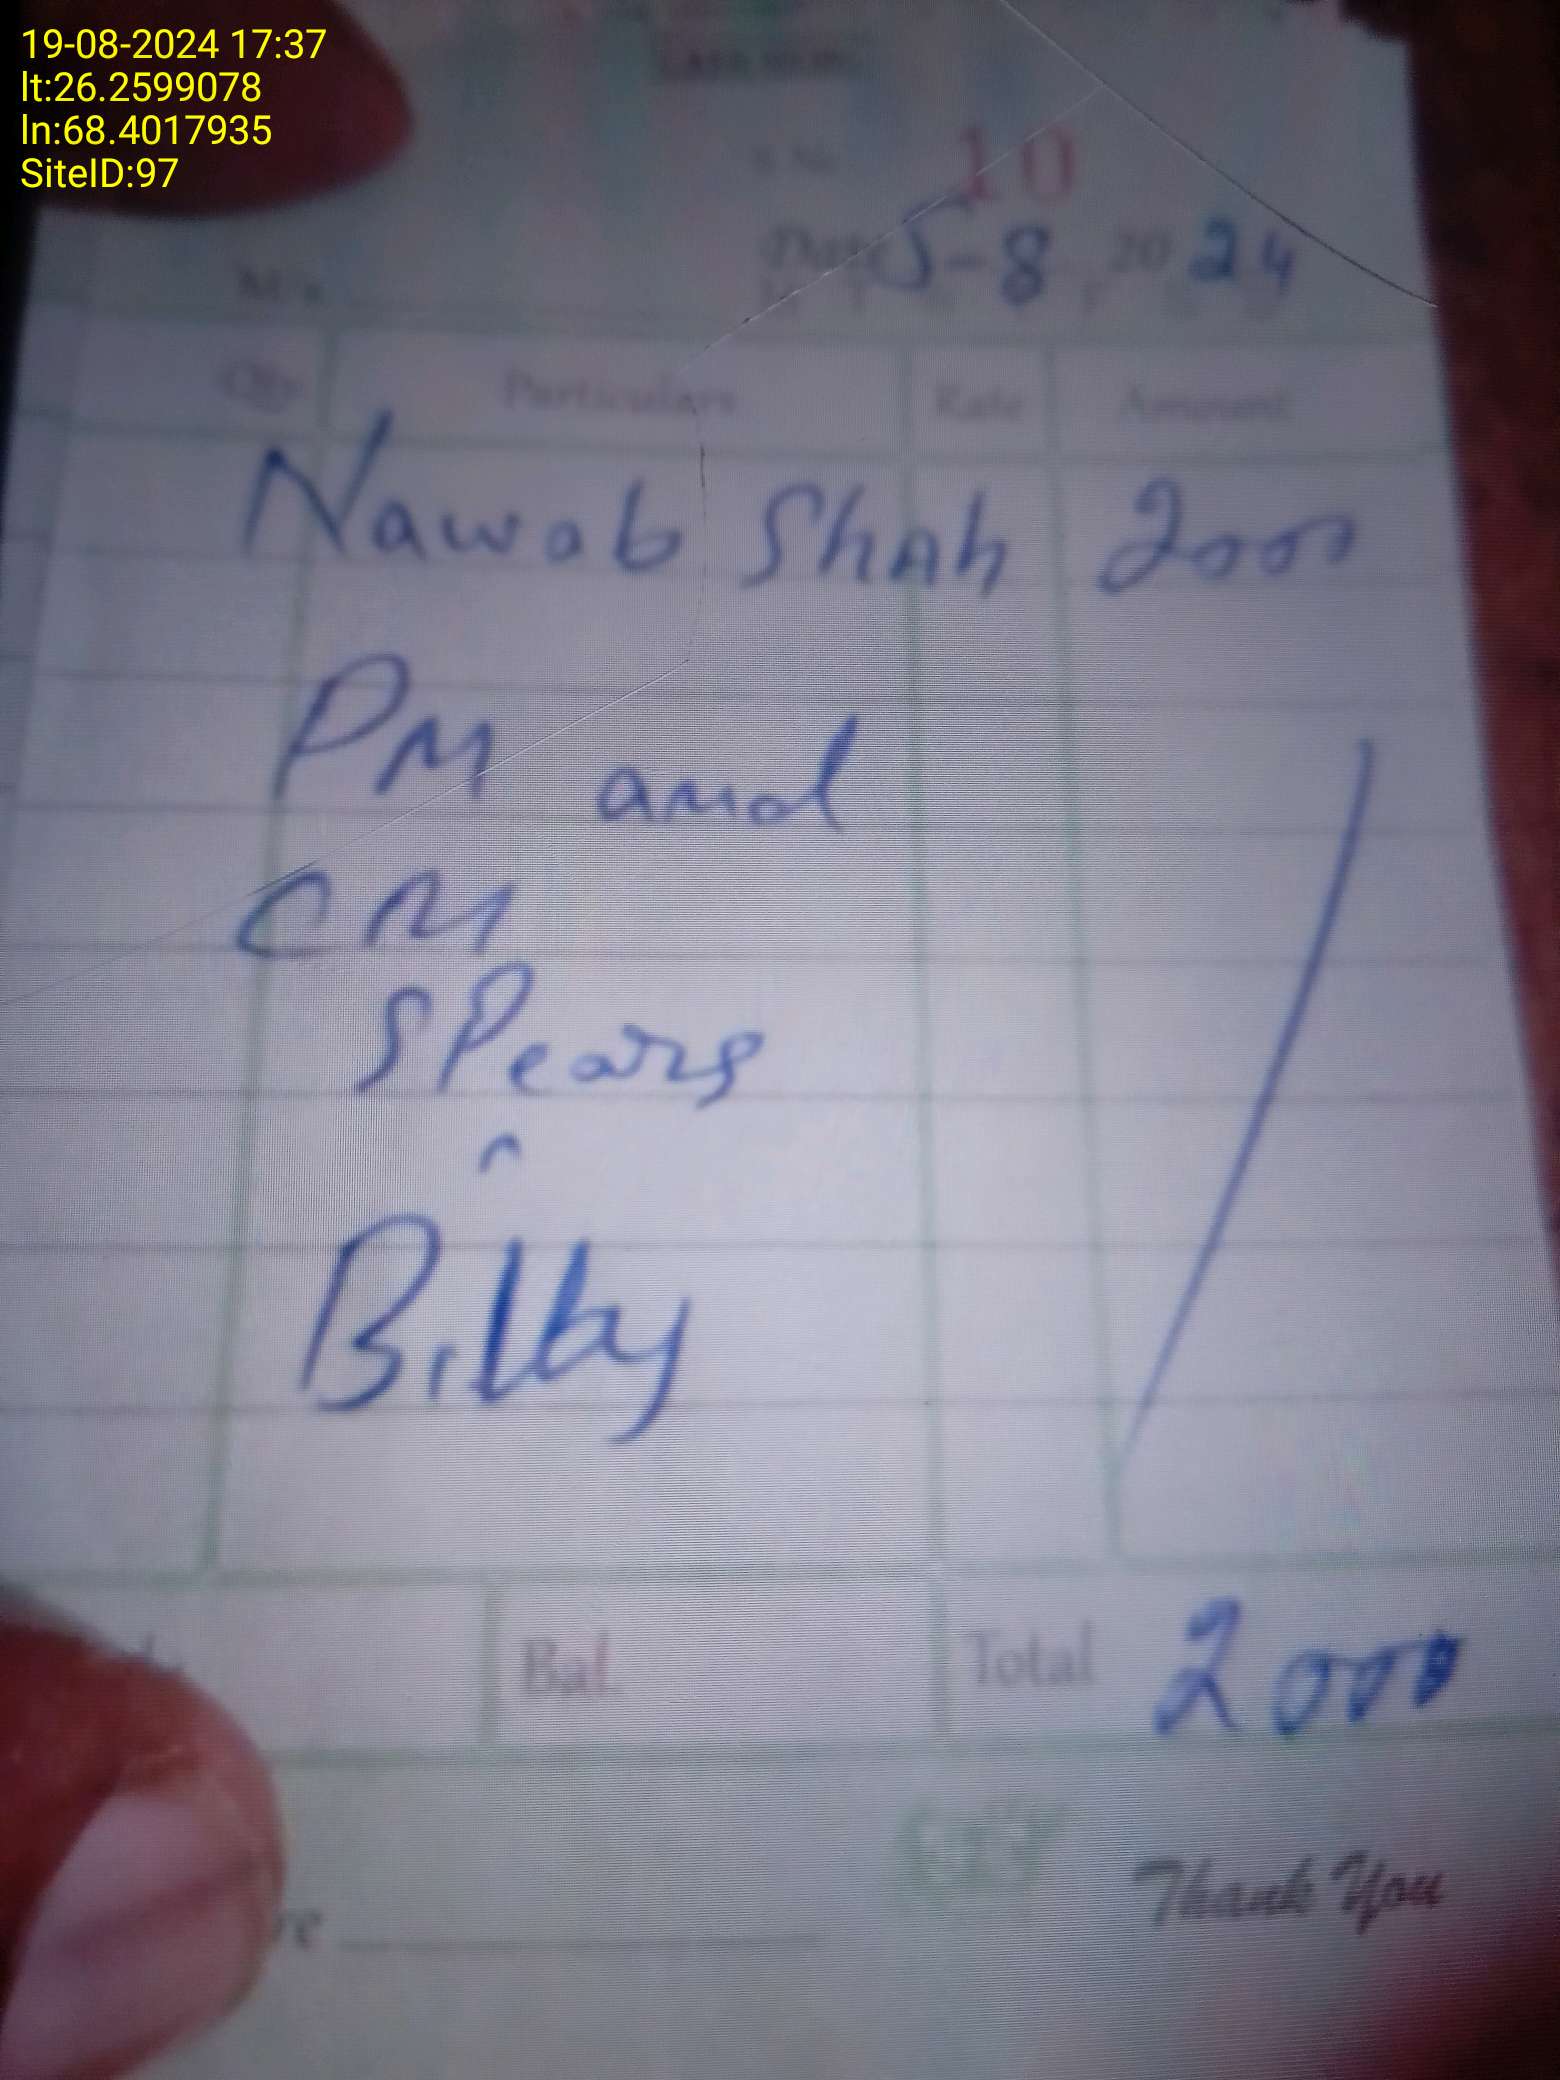 19-08-2024 17:37
lt:26.2599078
ln:68.4017935
SiteID:97
CASH MEMO
10
Date 5-8 2024
M/s
Qty Particulars Rate Amount
Nawab Shah 2000
PM and
CM
SPears
Bilty
Bal Total 2000
Thank You